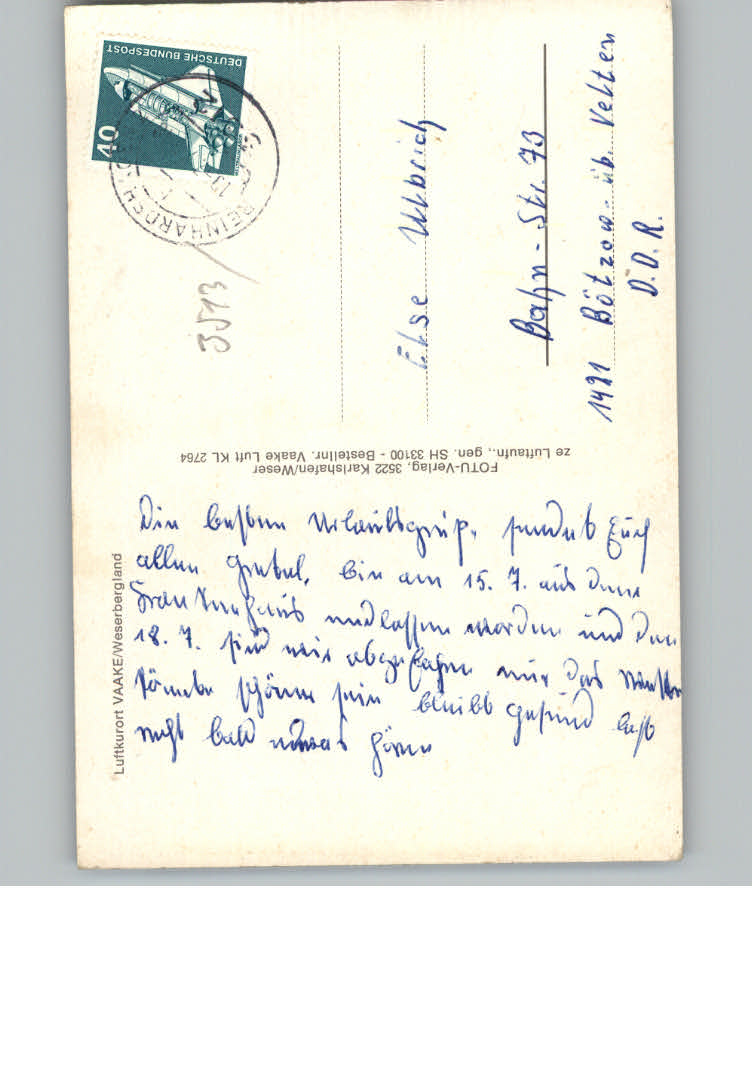 Die besten Urlaubsgrüße sendet Euch
allen Gretel, bin am 15. 7. aus dem
Krankenhaus entlassen worden und den
18. 7. sind wir abgefahren nur das Wetter
könnte schöner sein bleibt gesund laßt
recht bald etwas hören
Luftkurort VAAKE/Weserbergland
FOTU-Verlag, 3522 Karlshafen/Weser
ze Luftaufn., gen. SH 33100 - Bestellnr. Vaake Luft KL 2764
DEUTSCHE BUNDESPOST
40
REINHARDSH
3513
Else Ulbrich
Bahn-Str. 73
1421 Bötzow - üb. Velten
D.D.R.